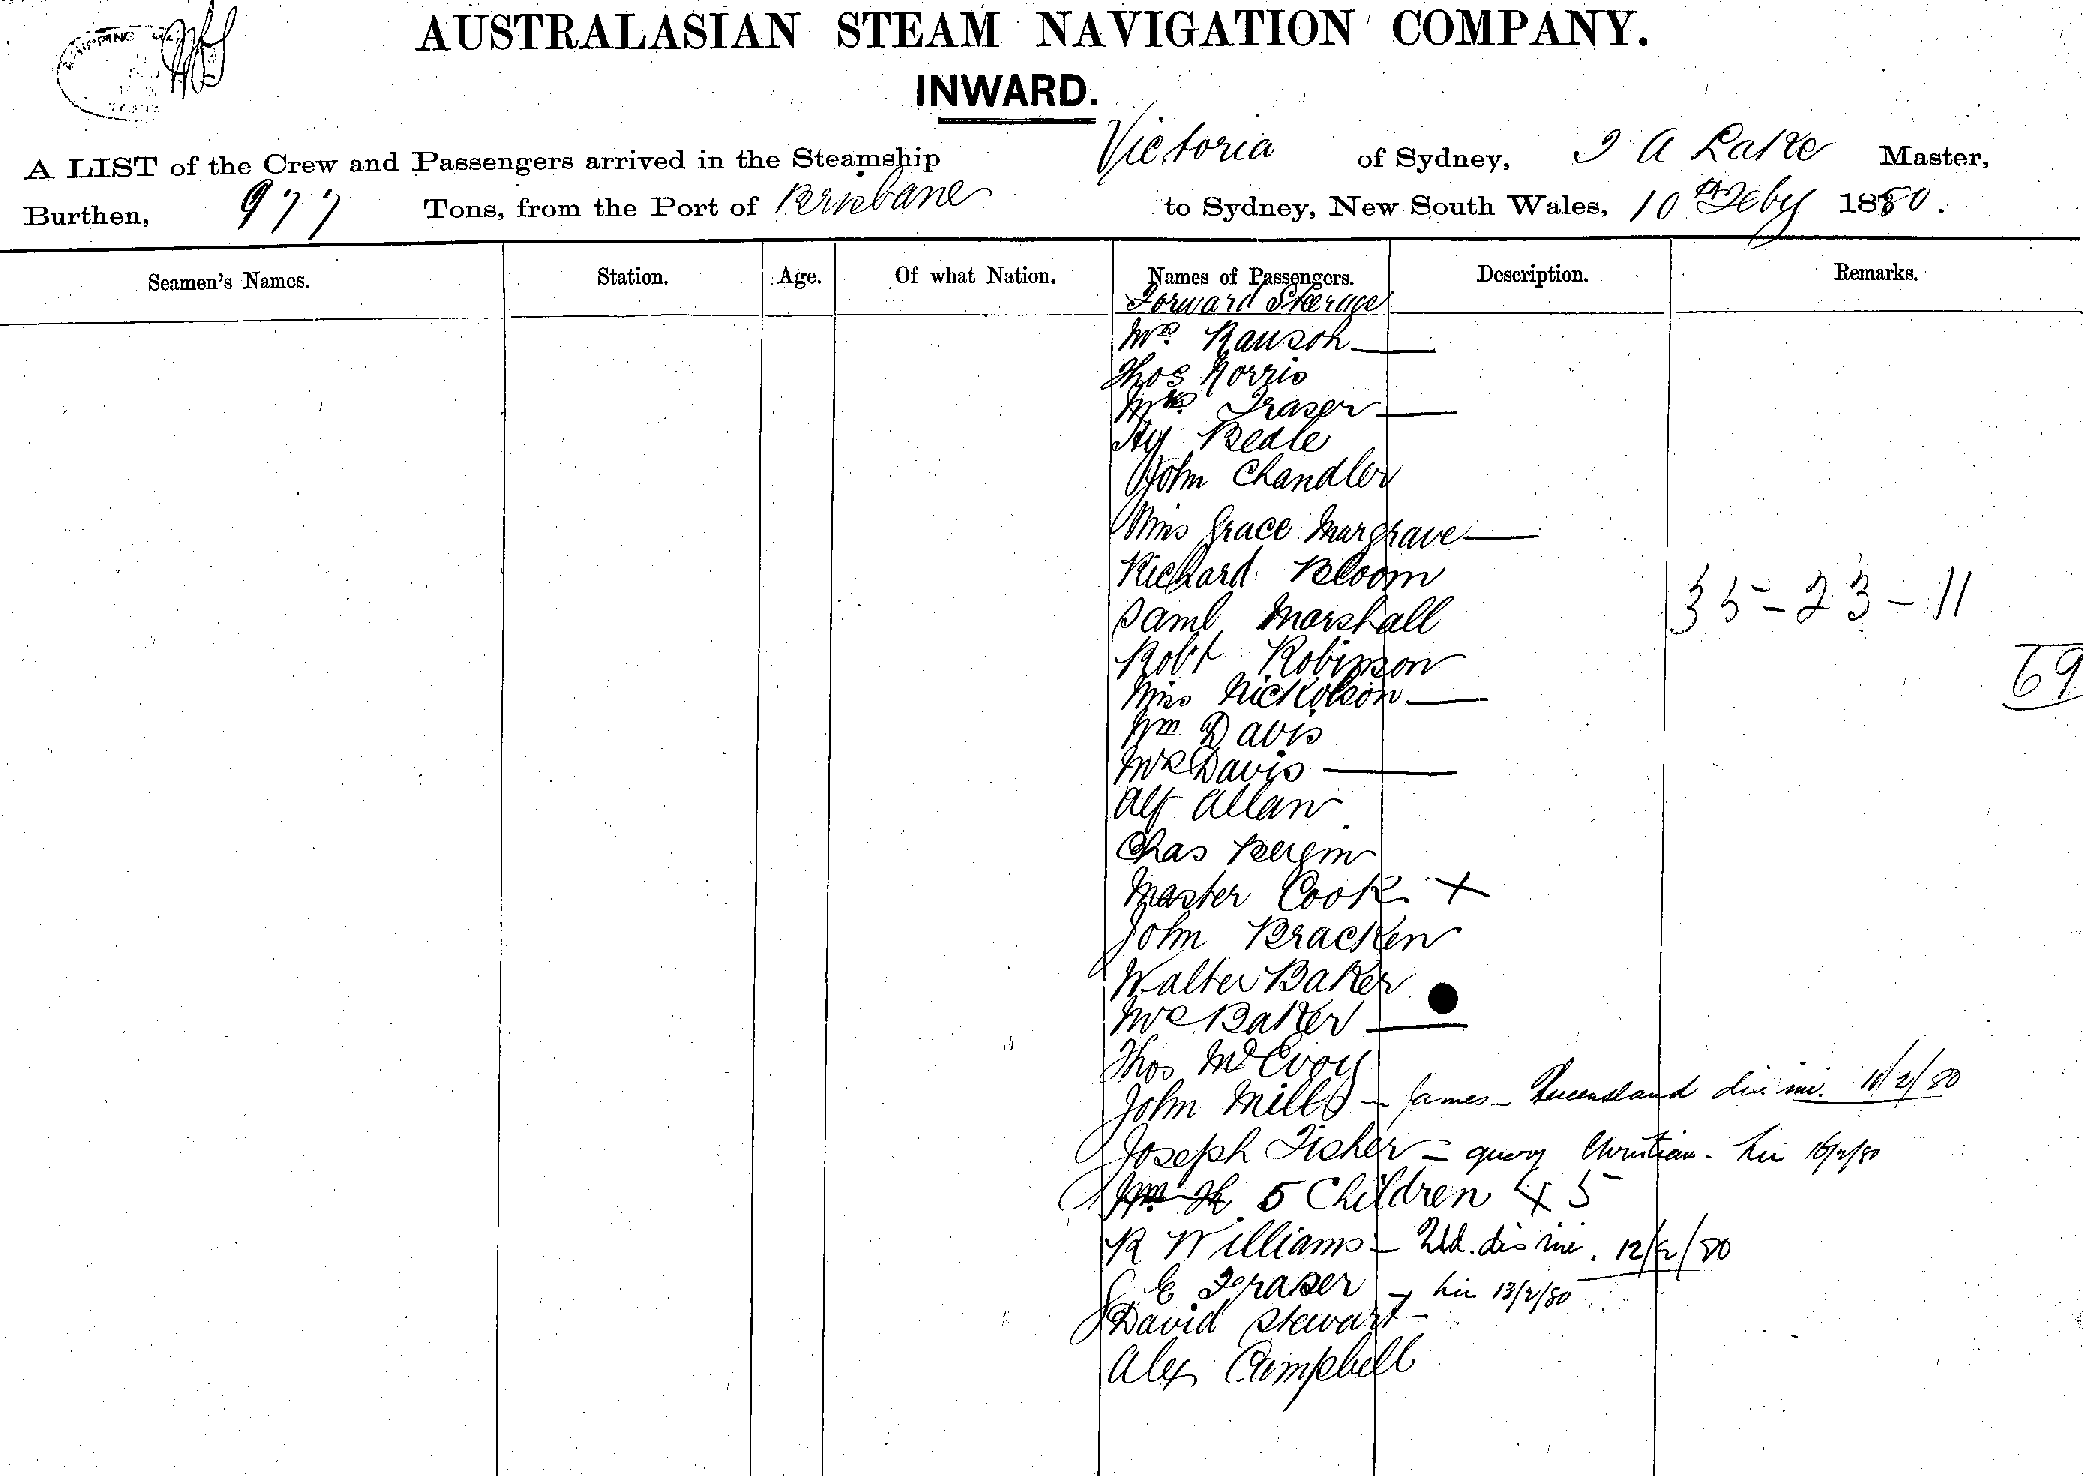 AUSTRALASIAN STEAM NAVIGATION COMPANY.
INWARD.
A LIST of the Crew and Passengers arrived in the Steamship Victoria of Sydney, J A Lake Master,
Burthen, 977 Tons, from the Port of Brisbane to Sydney, New South Wales, 10th Feby 1880.
Seamen's Names. Station. Age. Of what Nation. Names of Passengers. Description. Remarks.
Forward Steerage
Mrs. Ranson
Thos Norris
Mrs. Fraser
Hy Beale
John Chandler
Miss Grace Margrave
Richard Bloom
Saml Marshall
35-23-11
Robt Robinson
69
Miss Nickolson
Wm Davis
Mrs Davis
Alf Allan
Chas
Master Cook X
John Bracken
Walter Baker
Mrs Baker
Thos McEvoy
John Mills - James - Queensland
Joseph Fisher - query Christian
5 Children 5
R Williams - 12/2/80
E Fraser 13/2/80
David Stewart
Alex Campbell